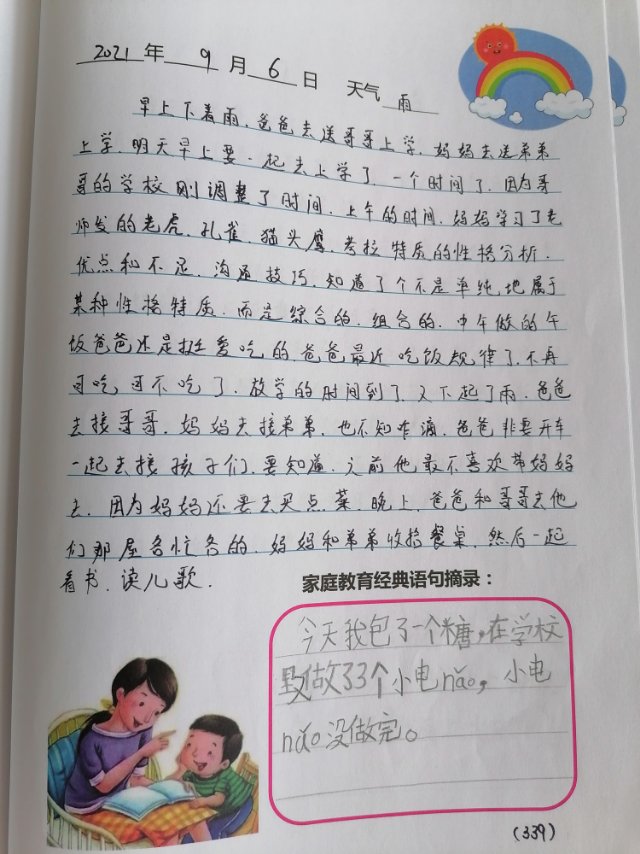 2021年 9月 6日 天气 雨
早上下着雨.爸爸去送哥哥上学.妈妈去送弟弟
上学.明天早上要一起去上学了.一个时间了.因为哥
哥的学校刚调整了时间.上午的时间.妈妈学习了老
师发的老虎.孔雀.猫头鹰.考拉特质的性格分析.
优点和不足.沟通技巧.知道了个不是单纯地属于
某种性格特质.而是综合的.组合的.中午做的午
饭爸爸还是挺爱吃的.爸爸最近吃饭规律了.不再
可吃可不吃了.放学的时间到了.又下起了雨.爸爸
去接哥哥.妈妈去接弟弟.也不知咋滴.爸爸非要开车
一起去接孩子们.要知道.之前他最不喜欢带妈妈
去.因为妈妈还要去买点菜.晚上.爸爸和哥哥去他
们那屋各忙各的.妈妈和弟弟收拾餐桌.然后一起
看书.读儿歌.
家庭教育经典语句摘录：
今天我包了一个糖,在学校
做了3个小电nǎo,小电
nǎo没做完。
(339)